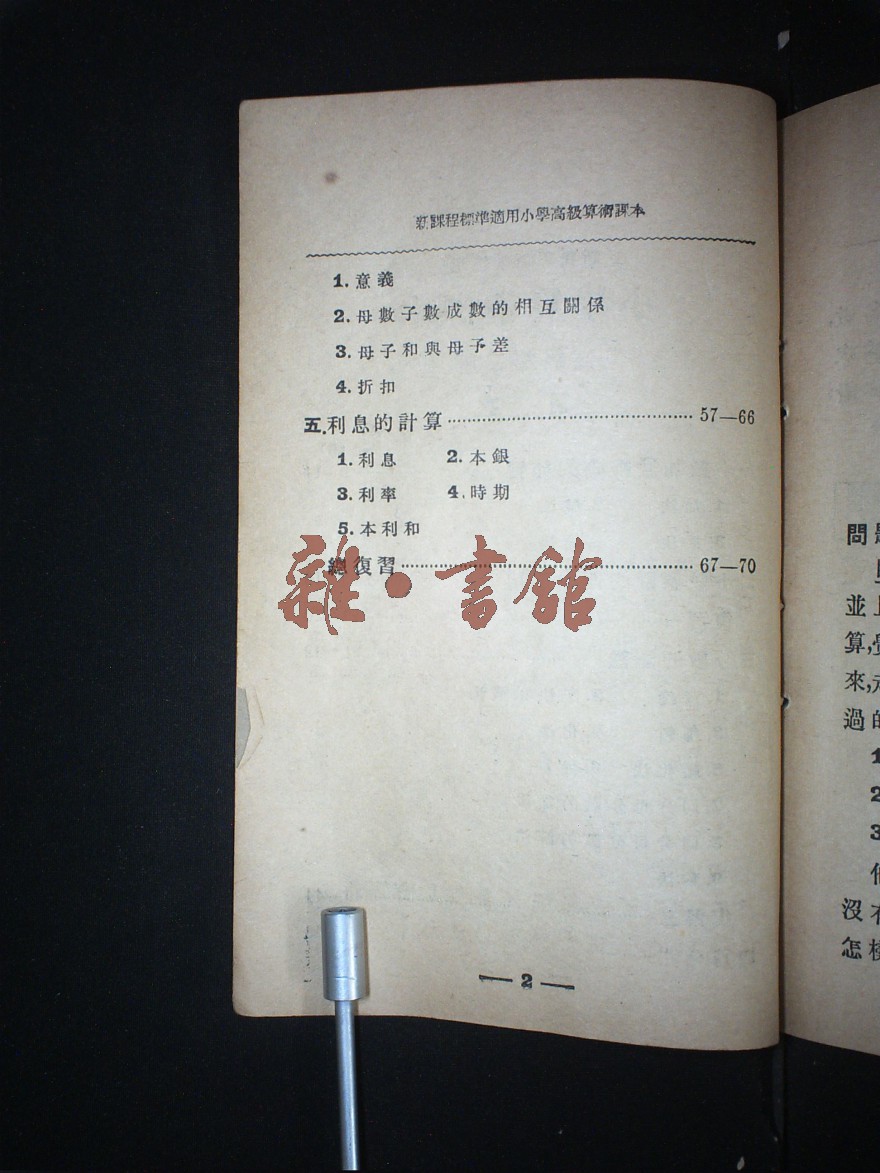 新課程標準適用小學高級算術課本
1. 意義
2. 母數子數成數的相互關係
3. 母子和與母子差
4. 折扣
五.利息的計算……57—66
1. 利息 2. 本銀
3. 利率 4. 時期
5. 本利和
總復習……67—70
雜·書館
—2—
問
並
算,
來,
過的
1
2
3
沒有
怎